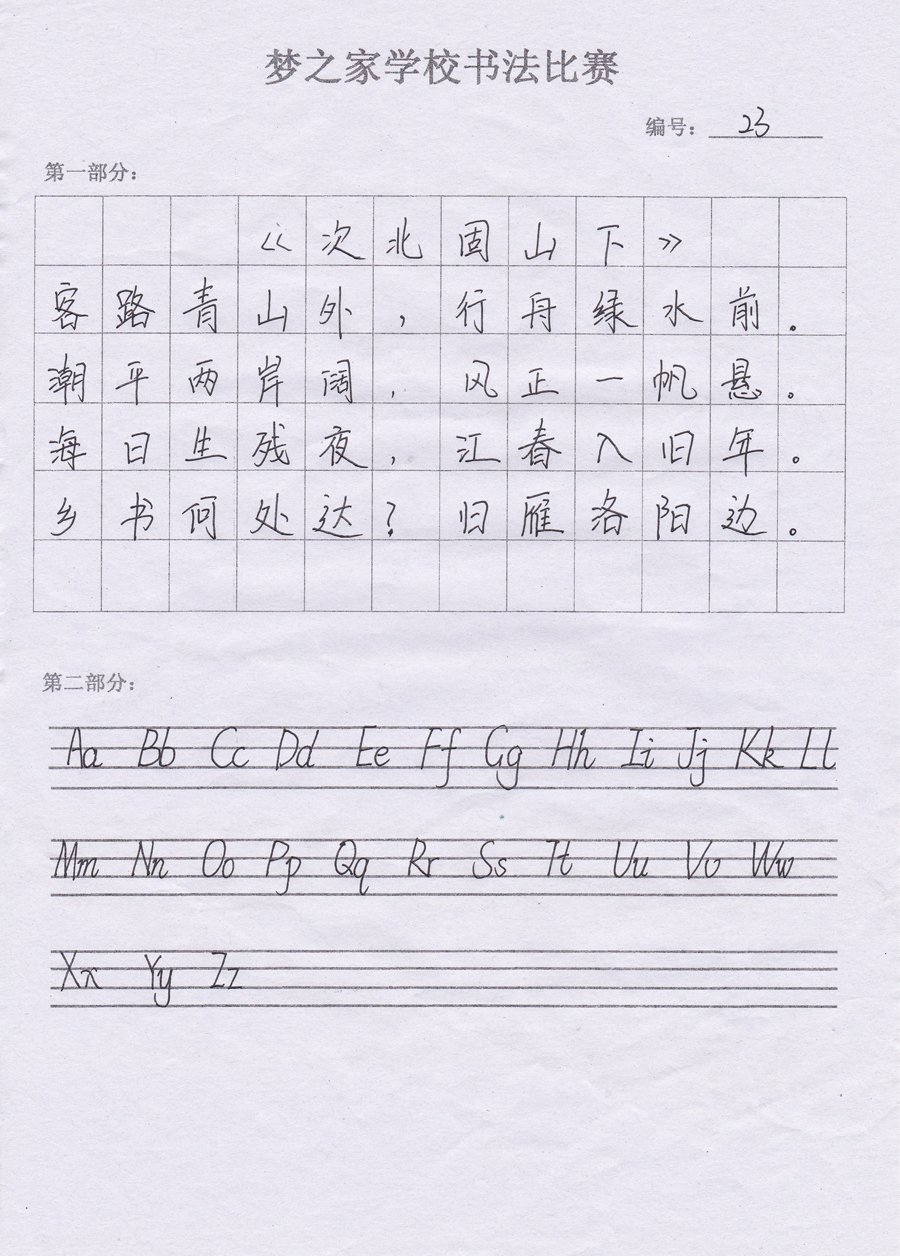 梦之家学校书法比赛
编号：23
第一部分：
《次北固山下》
客路青山外，行舟绿水前。
潮平两岸阔，风正一帆悬。
海日生残夜，江春入旧年。
乡书何处达？归雁洛阳边。
第二部分：
Aa Bb Cc Dd Ee Ff Gg Hh Ii Jj Kk Ll
Mm Nn Oo Pp Qq Rr Ss Tt Uu Vv Ww
Xx Yy Zz